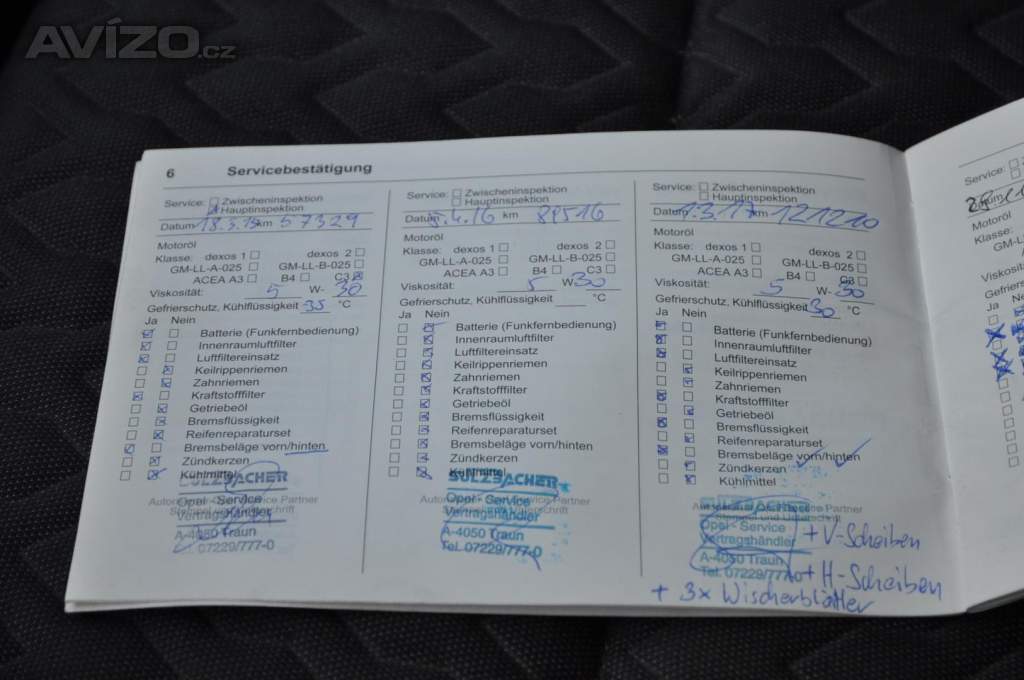 AVÍZO.cz
6 Servicebestätigung
Service: Zwischeninspektion
Hauptinspektion
Datum 18.3.15 km 57329
Motoröl
Klasse: dexos 1 dexos 2
GM-LL-A-025 GM-LL-B-025
ACEA A3 B4 C3
Viskosität: 5 W- 30
Gefrierschutz, Kühlflüssigkeit -35 °C
Ja Nein
Batterie (Funkfernbedienung)
Innenraumluftfilter
Luftfiltereinsatz
Keilrippenriemen
Zahnriemen
Kraftstofffilter
Getriebeöl
Bremsflüssigkeit
Reifenreparaturset
Bremsbeläge vorn/hinten
Zündkerzen
Kühlmittel
SULZBACHER
Opel - Service
Vertragshändler
A-4050 Traun
07229/777-0
Service: Zwischeninspektion
Hauptinspektion
Datum 5.4.16 km 88516
Motoröl
Klasse: dexos 1 dexos 2
GM-LL-A-025 GM-LL-B-025
ACEA A3 B4 C3
Viskosität: 5 W 30
Gefrierschutz, Kühlflüssigkeit °C
Ja Nein
Batterie (Funkfernbedienung)
Innenraumluftfilter
Luftfiltereinsatz
Keilrippenriemen
Zahnriemen
Kraftstofffilter
Getriebeöl
Bremsflüssigkeit
Reifenreparaturset
Bremsbeläge vorn/hinten
Zündkerzen
Kühlmittel
SULZBACHER
Opel - Service
Vertragshändler
A-4050 Traun
Tel. 07229/777-0
Service: Zwischeninspektion
Hauptinspektion
Datum 1.3.17 km 121210
Motoröl
Klasse: dexos 1 dexos 2
GM-LL-A-025 GM-LL-B-025
ACEA A3 B4 C3
Viskosität: 5 W- 30
Gefrierschutz, Kühlflüssigkeit 30 °C
Ja Nein
Batterie (Funkfernbedienung)
Innenraumluftfilter
Luftfiltereinsatz
Keilrippenriemen
Zahnriemen
Kraftstofffilter
Getriebeöl
Bremsflüssigkeit
Reifenreparaturset
Bremsbeläge vorn/hinten
Zündkerzen
Kühlmittel
SULZBACHER
Opel - Service
Vertragshändler + V-Scheiben
A-4050 Traun
Tel. 07229/777-0 + H-Scheiben
+ 3x Wischerblätter
Service:
Datum
Motoröl
Klasse:
Ja